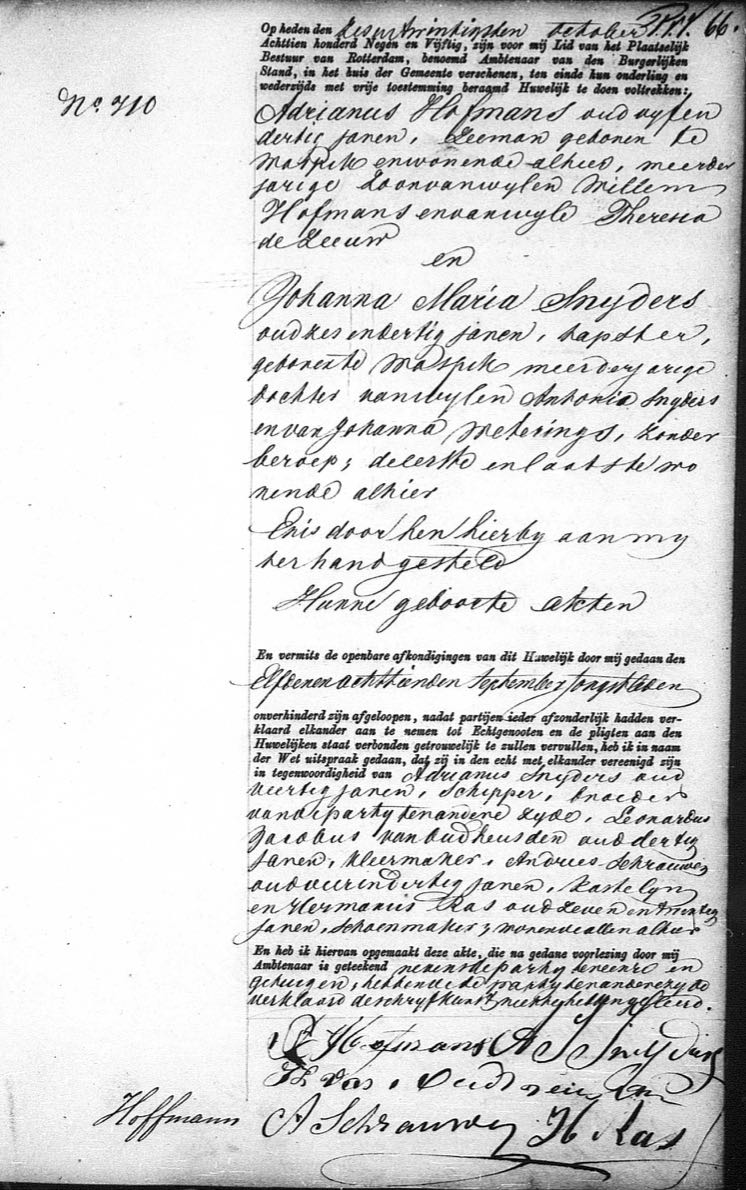 66.
Op heden den zesentwintigsten october
Achttien honderd Negen en Vijftig, zijn voor mij Lid van het Plaatselijk
Bestuur van Rotterdam, benoemd Ambtenaar van den Burgerlijken
Stand, in het huis der Gemeente verschenen, ten einde hun onderling en
wederzijds met vrije toestemming beraamd Huwelijk te doen voltrekken:
No. 710
Adrianus Hofmans oud vyfen
dertig jaren, Zeeman geboren te
Waspik en wonende alhier, meerder
jarige Zoon van wylen Willem
Hofmans en van wyle Theresia
de Zeeuw
en
Johanna Maria Snyders
oud zes en dertig jaren, tapster,
geboren te Waspik meerderjarige
dochter van wylen Antonie Snyders
en van Johanna Weterings, zonder
beroep; de eerste en laatste wo
nende alhier
En is door hen hierby aan my
ter hand gesteld
Hunne geboorte akten
En vermits de openbare afkondigingen van dit Huwelijk door mij gedaan den
Elfden en achttienden September jongstleden
onverhinderd zijn afgeloopen, nadat partijen ieder afzonderlijk hadden ver-
klaard elkander aan te nemen tot Echtgenooten en de pligten aan den
Huwelijken staat verbonden getrouwelijk te zullen vervullen, heb ik in naam
der Wet uitspraak gedaan, dat zij in den echt met elkander vereenigd zijn
in tegenwoordigheid van Adrianus Snyders oud
veertig jaren, Schipper, broeder
van de party ter andere zyde, Leonardus
Jacobus van Oudheusden oud dertig
jaren, kleermaker, Andries Schrauwen
oud vier en dertig jaren, kastelyn
en Hermanus Ras oud zeven en twintig
jaren, schoenmaker; wonende allen alhier
En heb ik hiervan opgemaakt deze akte, die na gedane voorlezing door mij
Ambtenaar is geteekend nevens de party ter eenre en
getuigen, hebbende de party ter andere zyde
verklaard de schryfkunst niet te hebben geleerd.
Hofmans A Snyders
van Oudheusden
Hoffmann A Schrauwen H Ras